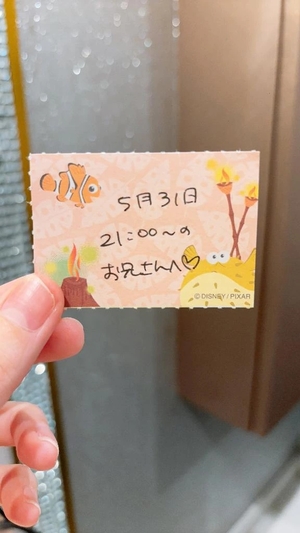 5月31日
21:00〜の
お兄さんへ♡
© DISNEY / PIXAR